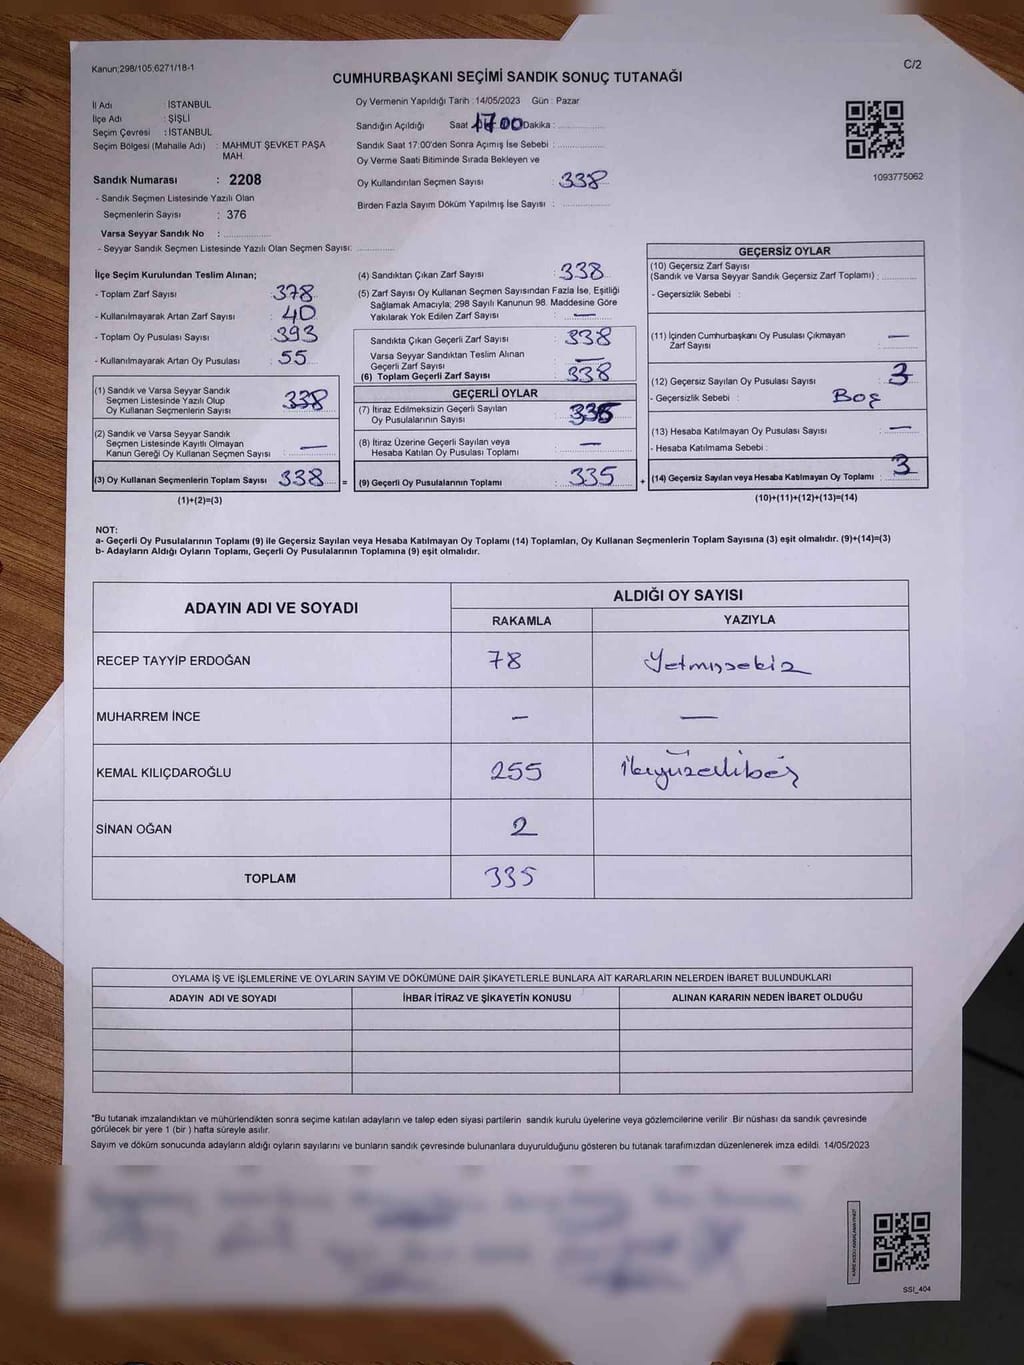 Kanun;298/105;6271/18-1
C/2
CUMHURBAŞKANI SEÇİMİ SANDIK SONUÇ TUTANAĞI
İl Adı : İSTANBUL
İlçe Adı : ŞİŞLİ
Seçim Çevresi : İSTANBUL
Seçim Bölgesi (Mahalle Adı) : MAHMUT ŞEVKET PAŞA
MAH.
Sandık Numarası : 2208
- Sandık Seçmen Listesinde Yazılı Olan
Seçmenlerin Sayısı : 376
Varsa Seyyar Sandık No :
- Seyyar Sandık Seçmen Listesinde Yazılı Olan Seçmen Sayısı:
Oy Vermenin Yapıldığı Tarih : 14/05/2023 Gün : Pazar
Sandığın Açıldığı Saat 17 00 Dakika :
Sandık Saat 17:00'den Sonra Açımış İse Sebebi :
Oy Verme Saati Bitiminde Sırada Bekleyen ve
Oy Kullandırılan Seçmen Sayısı : 338
Birden Fazla Sayım Döküm Yapılmış İse Sayısı :
1093775062
İlçe Seçim Kurulundan Teslim Alınan;
- Toplam Zarf Sayısı : 378
- Kullanılmayarak Artan Zarf Sayısı : 40
- Toplam Oy Pusulası Sayısı : 393
- Kullanılmayarak Artan Oy Pusulası : 55
(1) Sandık ve Varsa Seyyar Sandık
Seçmen Listesinde Yazılı Olup
Oy Kullanan Seçmenlerin Sayısı : 338
(2) Sandık ve Varsa Seyyar Sandık
Seçmen Listesinde Kayıtlı Olmayan
Kanun Gereği Oy Kullanan Seçmen Sayısı : —
(3) Oy Kullanan Seçmenlerin Toplam Sayısı : 338 =
(1)+(2)=(3)
(4) Sandıktan Çıkan Zarf Sayısı : 338
(5) Zarf Sayısı Oy Kullanan Seçmen Sayısından Fazla İse, Eşitliği
Sağlamak Amacıyla; 298 Sayılı Kanunun 98. Maddesine Göre
Yakılarak Yok Edilen Zarf Sayısı : —
Sandıkta Çıkan Geçerli Zarf Sayısı : 338
Varsa Seyyar Sandıktan Teslim Alınan
Geçerli Zarf Sayısı : —
(6) Toplam Geçerli Zarf Sayısı : 338
GEÇERLİ OYLAR
(7) İtiraz Edilmeksizin Geçerli Sayılan
Oy Pusulasının Sayısı : 335
(8) İtiraz Üzerine Geçerli Sayılan veya
Hesaba Katılan Oy Pusulası Toplamı : —
(9) Geçerli Oy Pusulalarının Toplamı : 335 +
GEÇERSİZ OYLAR
(10) Geçersiz Zarf Sayısı
(Sandık ve Varsa Seyyar Sandık Geçersiz Zarf Toplamı) :
- Geçersizlik Sebebi :
(11) İçinden Cumhurbaşkanı Oy Pusulası Çıkmayan
Zarf Sayısı : —
(12) Geçersiz Sayılan Oy Pusulası Sayısı : 3
- Geçersizlik Sebebi : Boş
(13) Hesaba Katılmayan Oy Pusulası Sayısı : —
- Hesaba Katılmama Sebebi :
(14) Geçersiz Sayılan veya Hesaba Katılmayan Oy Toplamı : 3
(10)+(11)+(12)+(13)=(14)
NOT:
a- Geçerli Oy Pusulalarının Toplamı (9) ile Geçersiz Sayılan veya Hesaba Katılmayan Oy Toplamı (14) Toplamları, Oy Kullanan Seçmenlerin Toplam Sayısına (3) eşit olmalıdır. (9)+(14)=(3)
b- Adayların Aldığı Oyların Toplamı, Geçerli Oy Pusulalarının Toplamına (9) eşit olmalıdır.
ADAYIN ADI VE SOYADI
ALDIĞI OY SAYISI
RAKAMLA YAZIYLA
RECEP TAYYİP ERDOĞAN 78 Yetmişsekiz
MUHARREM İNCE — —
KEMAL KILIÇDAROĞLU 255 İkiyüzellibeş
SİNAN OĞAN 2
TOPLAM 335
OYLAMA İŞ VE İŞLEMLERİNE VE OYLARIN SAYIM VE DÖKÜMÜNE DAİR ŞİKAYETLERLE BUNLARA AİT KARARLARIN NELERDEN İBARET BULUNDUKLARI
ADAYIN ADI VE SOYADI İHBAR İTİRAZ VE ŞİKAYETİN KONUSU ALINAN KARARIN NEDEN İBARET OLDUĞU
*Bu tutanak imzalandıktan ve mühürlendikten sonra seçime katılan adayların ve talep eden siyasi partilerin sandık kurulu üyelerine veya gözlemcilerine verilir Bir nüshası da sandık çevresinde
görülecek bir yere 1 (bir ) hafta süreyle asılır.
Sayım ve döküm sonucunda adayların aldığı oyların sayılarını ve bunların sandık çevresinde bulunanlara duyurulduğunu gösteren bu tutanak tarafımızdan düzenlenerek imza edildi. 14/05/2023
SSI_404